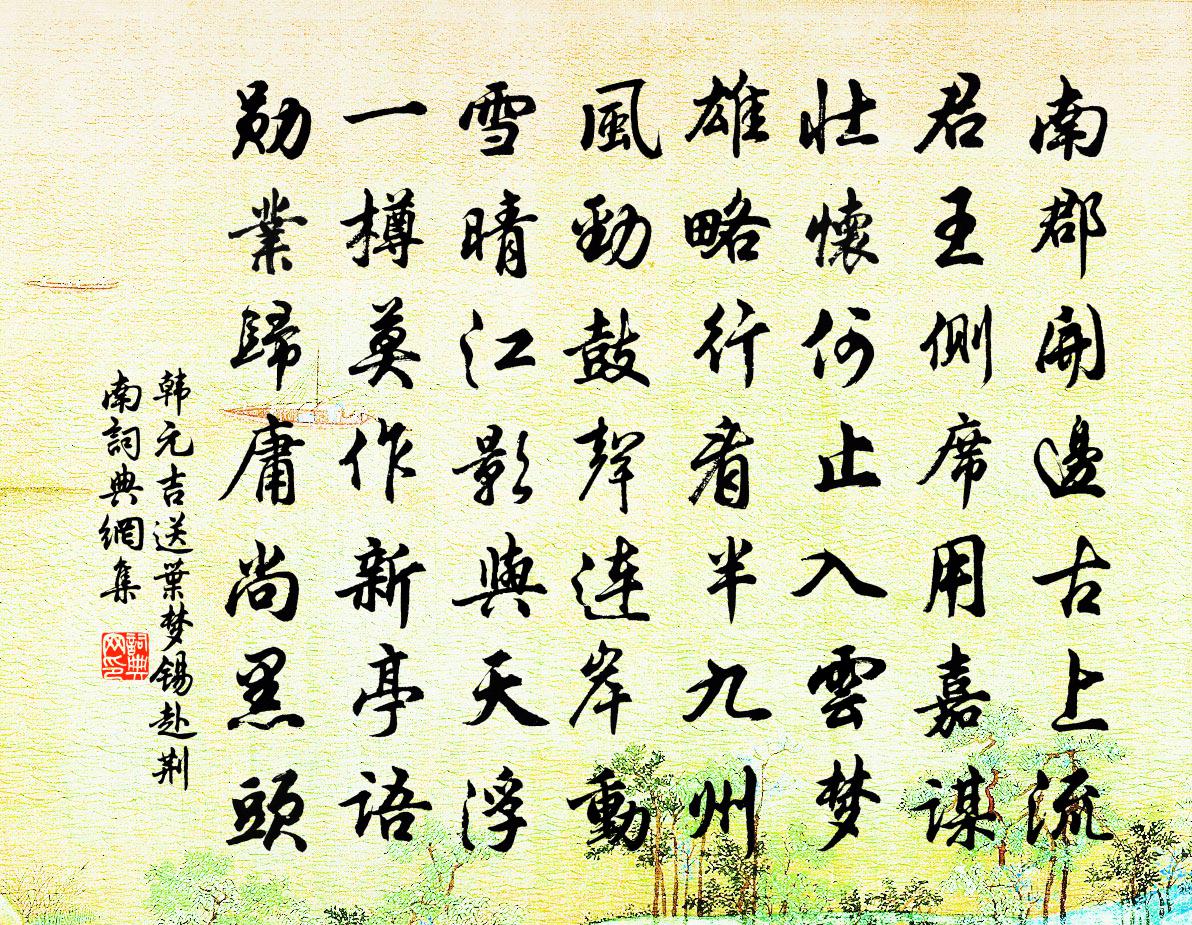 南郡開邊古上流
君王側席用嘉謀
壯懷何止入雲梦
雄略行看半九州
風勁鼓聲連岸動
雪晴江影與天浮
一樽莫作新亭語
勋業歸庸尚黑頭
韩元吉送葉梦锡赴荆
南詞典網集
詞典
网印